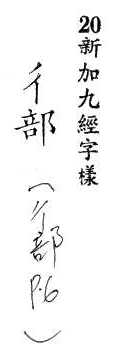 20新加九經字樣
彳部（彳部P.6）